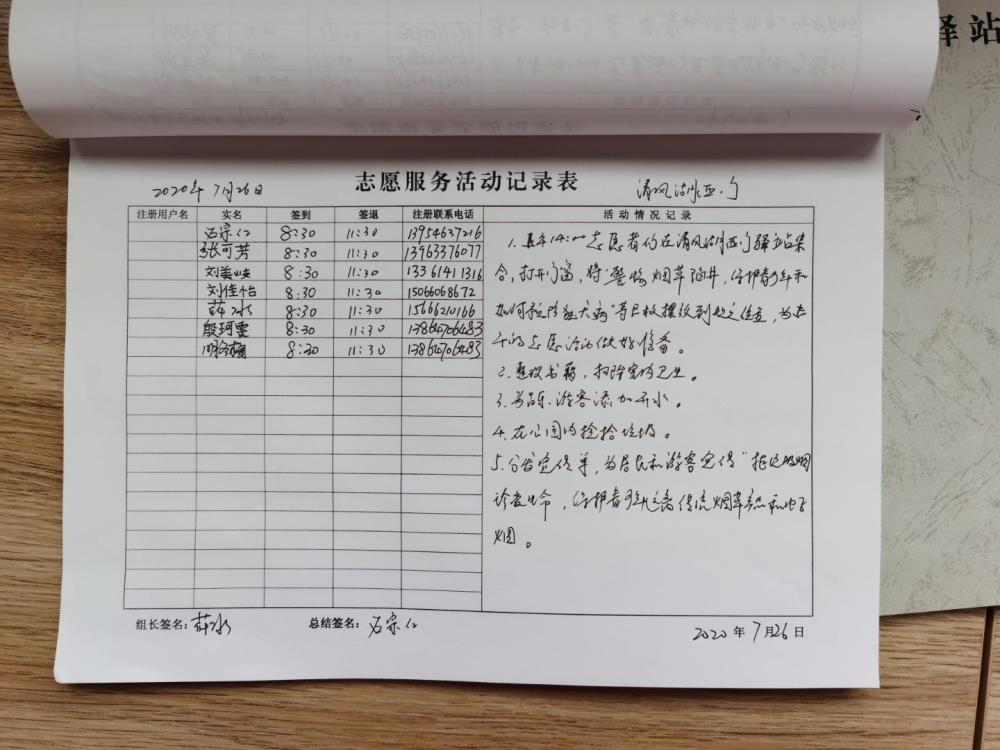 驿站
2020年7月26日 志愿服务活动记录表 清风湖西门
注册用户名 实名 签到 签退 注册联系电话 活动情况记录
石宗仁 8:30 11:30 13954637216
张可芳 8:30 11:30 13963376077
刘美 8:30 11:30 13361411316
刘佳怡 8:30 11:30 15066068672
薛冰 8:30 11:30 15666210166
殷珂雯 8:30 11:30 13864706483
8:30 11:30 13864706483
1. 14:00志愿者们在清风湖西门驿站集
合,打开门窗,将"警惕烟草陷井,守护青少年和
如何预防 病"等展板摆放到 位置,为
的志愿活动做好准备。
2.整理书籍,打扫室内卫生。
3.为 游客添加开水。
4.在公园内捡拾垃圾。
5.分发宣传单,为居民和游客宣传"拒绝吸烟
珍爱生命,守护青少年远离传统烟草 和电子
烟。
组长签名:薛冰 总结签名:石宗仁 2020年7月26日